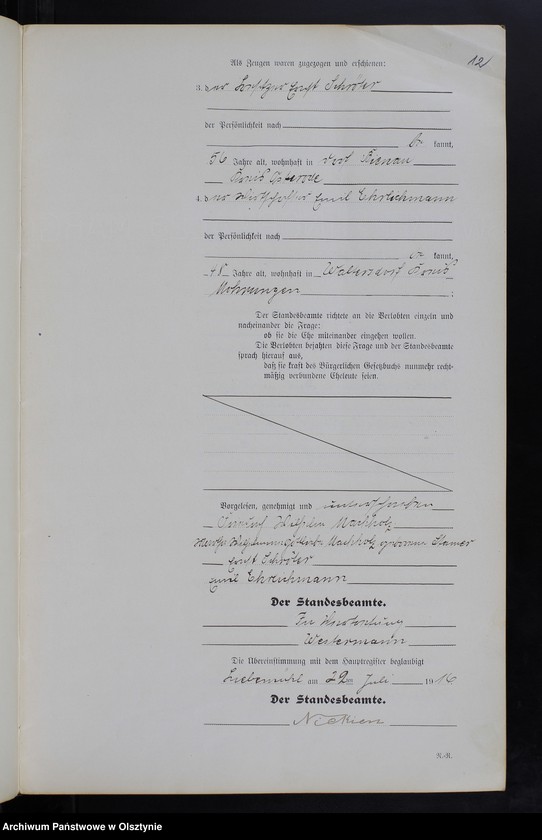 12
Als Zeugen waren zugezogen und erschienen:
3. der Ernst Schröter
der Persönlichkeit nach
kannt,
56 Jahre alt, wohnhaft in Dorf
Kreis Osterode
4. der Emil Ehrlichmann
der Persönlichkeit nach
kannt,
48 Jahre alt, wohnhaft in Kreis
Mohrungen;
Der Standesbeamte richtete an die Verlobten einzeln und
nacheinander die Frage:
ob sie die Ehe miteinander eingehen wollen.
Die Verlobten bejahten diese Frage und der Standesbeamte
sprach hierauf aus,
daß sie kraft des Bürgerlichen Gesetzbuchs nunmehr recht-
mäßig verbundene Eheleute seien.
Vorgelesen, genehmigt und unterschrieben
Wilhelm Machholz
Machholz geborene
Ernst Schröter
Emil Ehrlichmann
Der Standesbeamte.
In Vertretung
Westermann
Die Übereinstimmung mit dem Hauptregister beglaubigt
Liebemühl am 22ten Juli 1916
Der Standesbeamte.
R.-R.
Archiwum Państwowe w Olsztynie